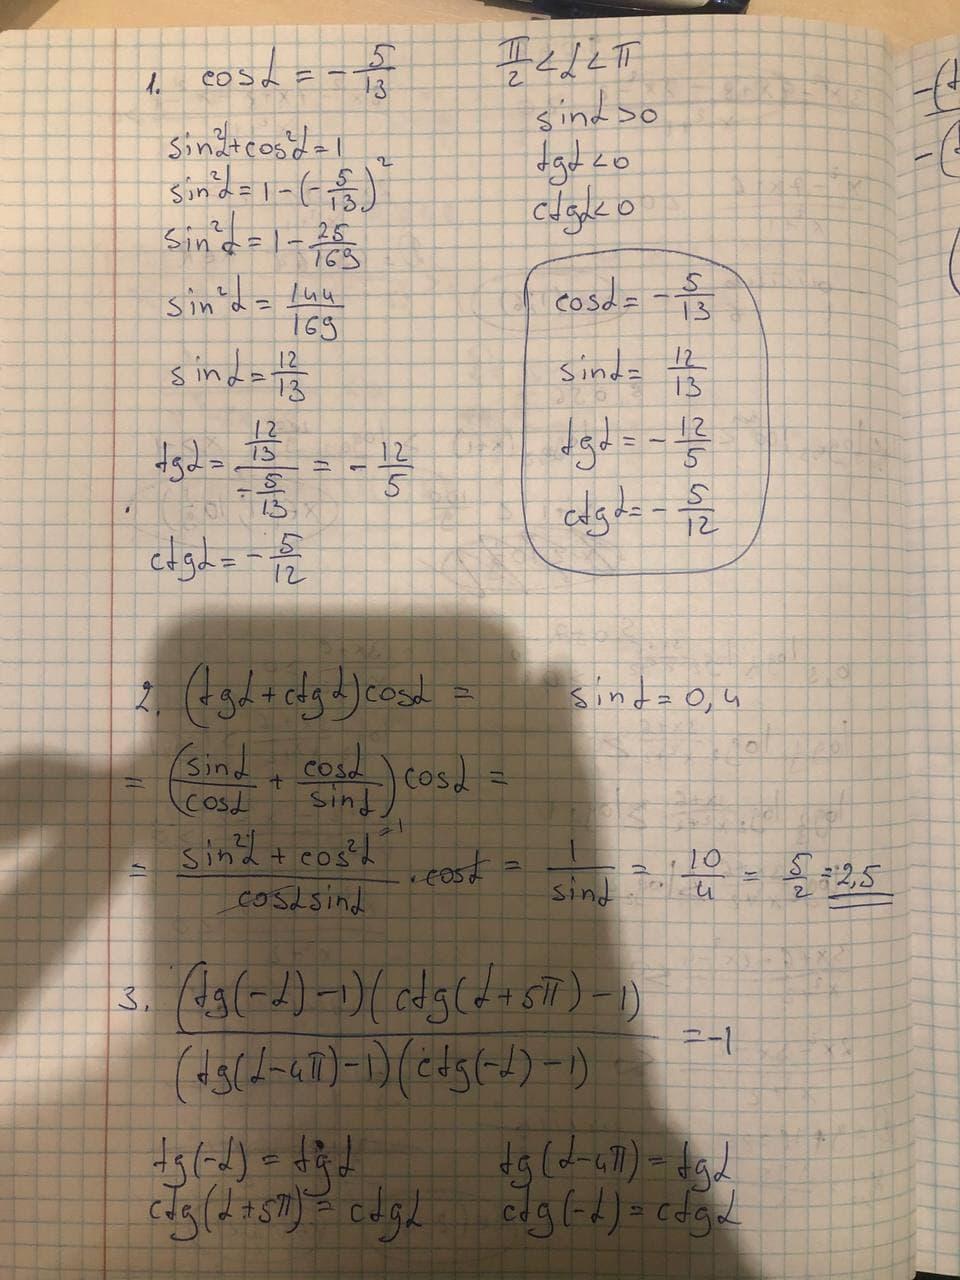 1. cosα = -5/13
π/2 < α < π
sinα > 0
tgα < 0
ctgα < 0
sin²α + cos²α = 1
sin²α = 1 - (-5/13)²
sin²α = 1 - 25/169
sin²α = 144/169
sinα = 12/13
tgα = (12/13)/(-5/13) = -12/5
ctgα = -5/12
cosα = -5/13
sinα = 12/13
tgα = -12/5
ctgα = -5/12
2. (tgα + ctgα)cosα =
sinα = 0,4
= (sinα/cosα + cosα/sinα) cosα =
= (sin²α + cos²α)^{=1}/(cosα sinα) · cosα = 1/sinα = 10/4 = 5/2 = 2,5
3. (tg(-α) - 1)(ctg(α + 5π) - 1)/(tg(α - 4π) - 1)(ctg(-α) - 1) = -1
tg(-α) = tgα
tg(α - 4π) = tgα
ctg(α + 5π) = ctgα
ctg(-α) = ctgα